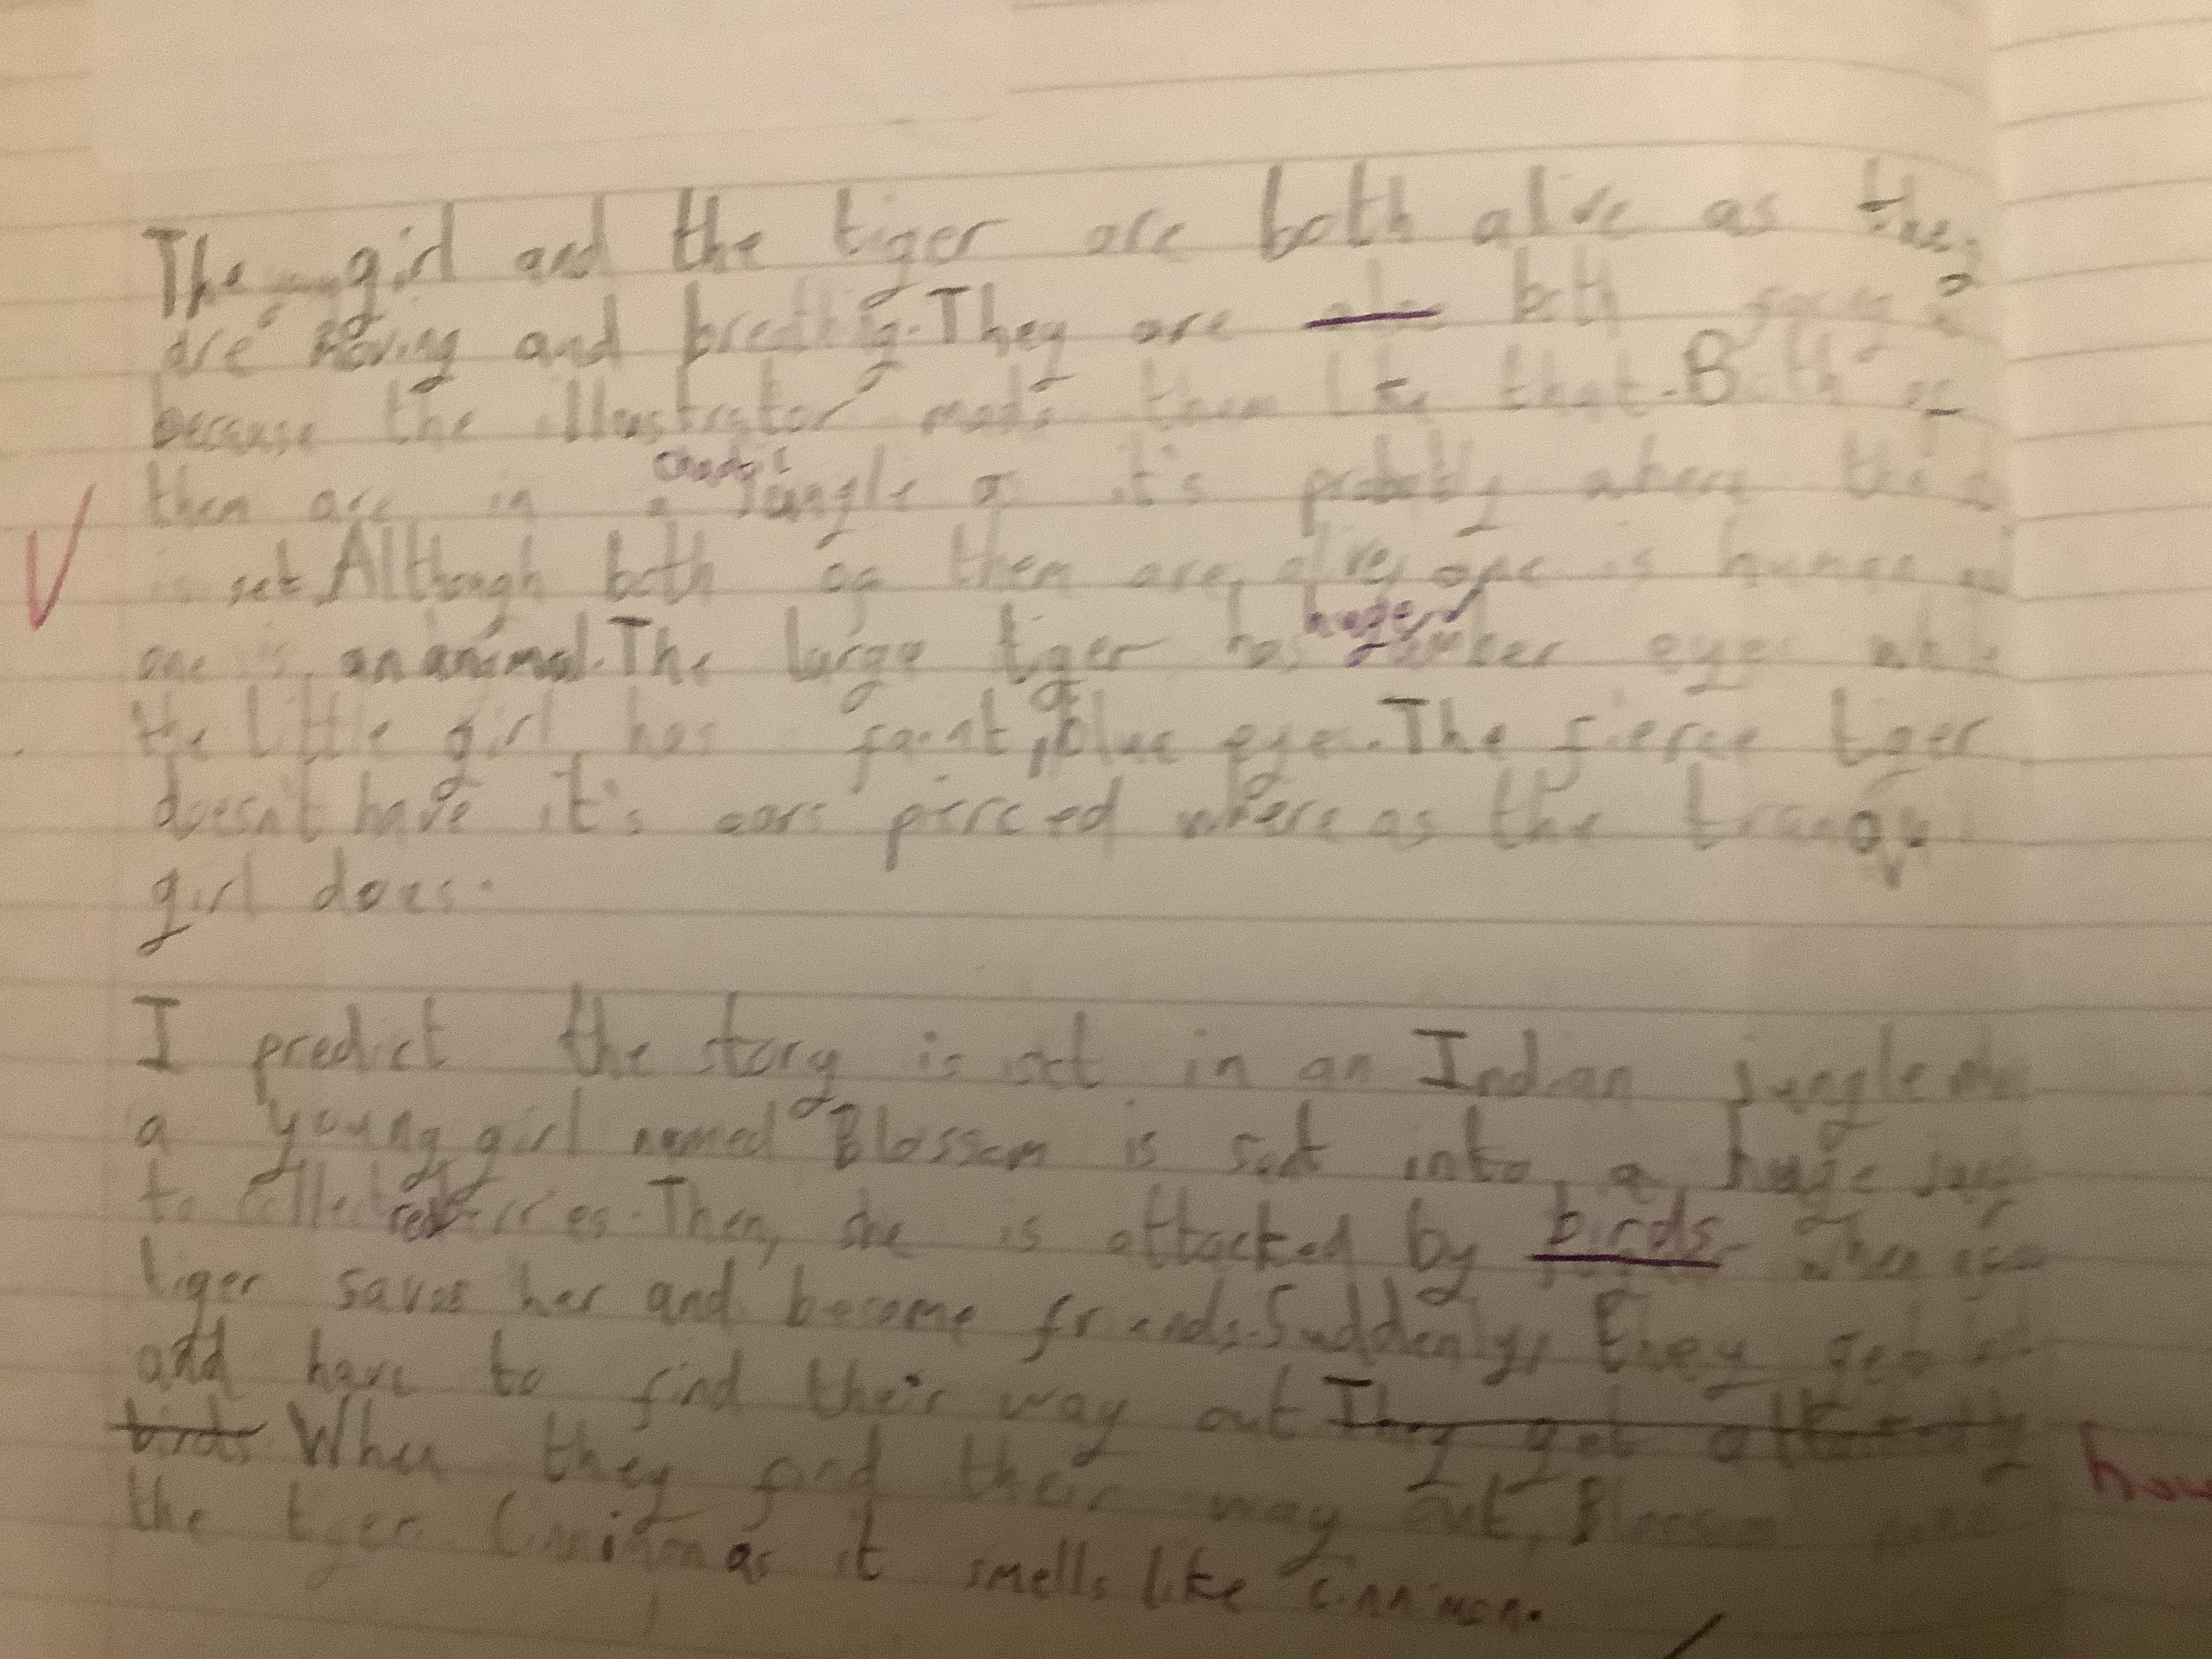 The young girl and the tiger are both alive as they
are moving and breathig. They are both facing
because the illustrator made them like that. Both of
chaotic
them are in a jungle as it's probably where the
is set. Although both og them are alive, one is human
huge
one is an animal. The large tiger has amber eyes
the little girl has faint, blue eyes. The fierce tiger
doesn't have it's ears pierced whereas the
girl does.
I predict the story is set in an Indian jungle
a young girl named Blossom is sent into a huge
to collect red berries. Then, she is attacked by birds when
tiger saves her and become friends. Suddenly, they get
and have to find their way out They get
birds When they find their way out, Blossom
the tiger as it smells like cinnimon.